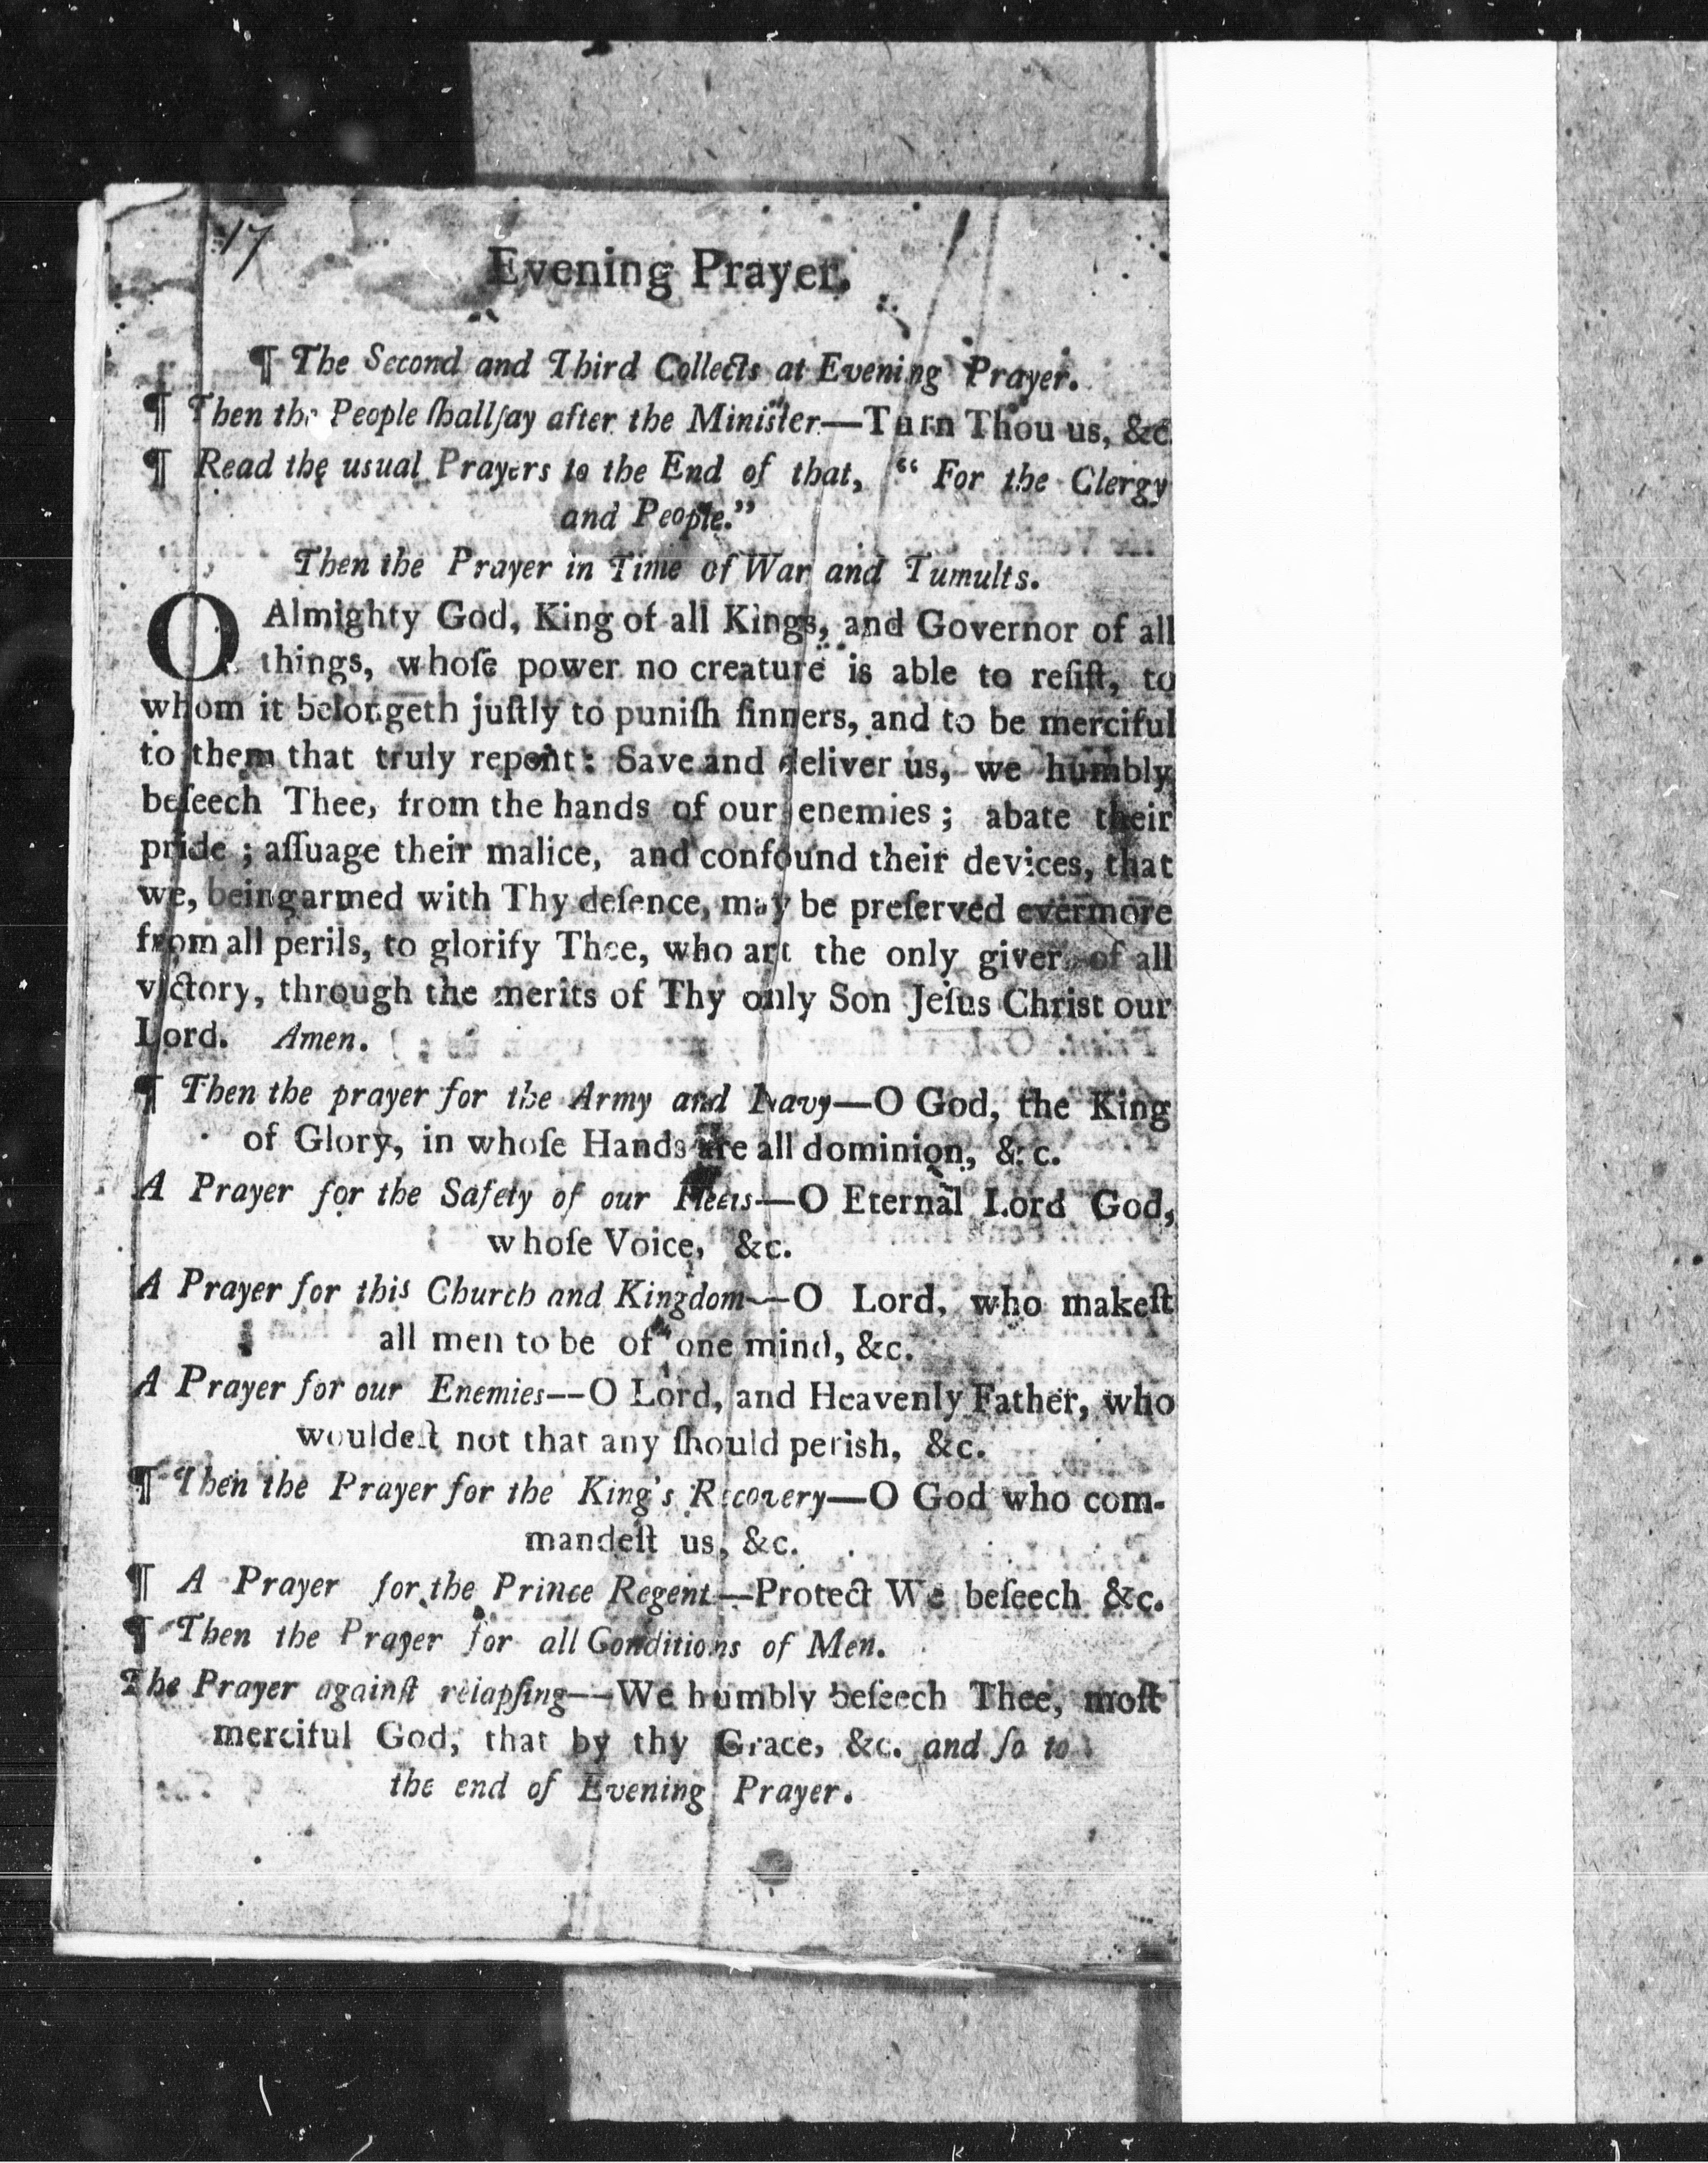 17
Evening Prayer.
¶ The Second and Third Collects at Evening Prayer.
¶ Then the People ſhall ſay after the Miniſter—Turn Thou us, &c.
¶ Read the usual Prayers to the End of that, “ For the Clergy
and People.”
Then the Prayer in Time of War and Tumults.
O Almighty God, King of all Kings, and Governor of all
things, whoſe power no creature is able to reſiſt, to
whom it belongeth juſtly to puniſh ſinners, and to be merciful
to them that truly repent: Save and deliver us, we humbly
beſeech Thee, from the hands of our enemies; abate their
pride; aſſuage their malice, and confound their devices, that
we, being armed with Thy defence, may be preſerved evermore
from all perils, to glorify Thee, who art the only giver of all
victory, through the merits of Thy only Son Jeſus Christ our
Lord. Amen.
¶ Then the prayer for the Army and Navy—O God, the King
of Glory, in whoſe Hands are all dominion, &c.
A Prayer for the Safety of our Fleets—O Eternal Lord God,
whoſe Voice, &c.
A Prayer for this Church and Kingdom—O Lord, who makeſt
all men to be of one mind, &c.
A Prayer for our Enemies--O Lord, and Heavenly Father, who
wouldeſt not that any ſhould perish, &c.
¶ Then the Prayer for the King's Recovery—O God who com-
mandeſt us, &c.
¶ A Prayer for the Prince Regent—Protect We beſeech &c.
¶ Then the Prayer for all Conditions of Men.
The Prayer againſt relapſing—We humbly beſeech Thee, moſt
merciful God, that by thy Grace, &c. and ſo to
the end of Evening Prayer.